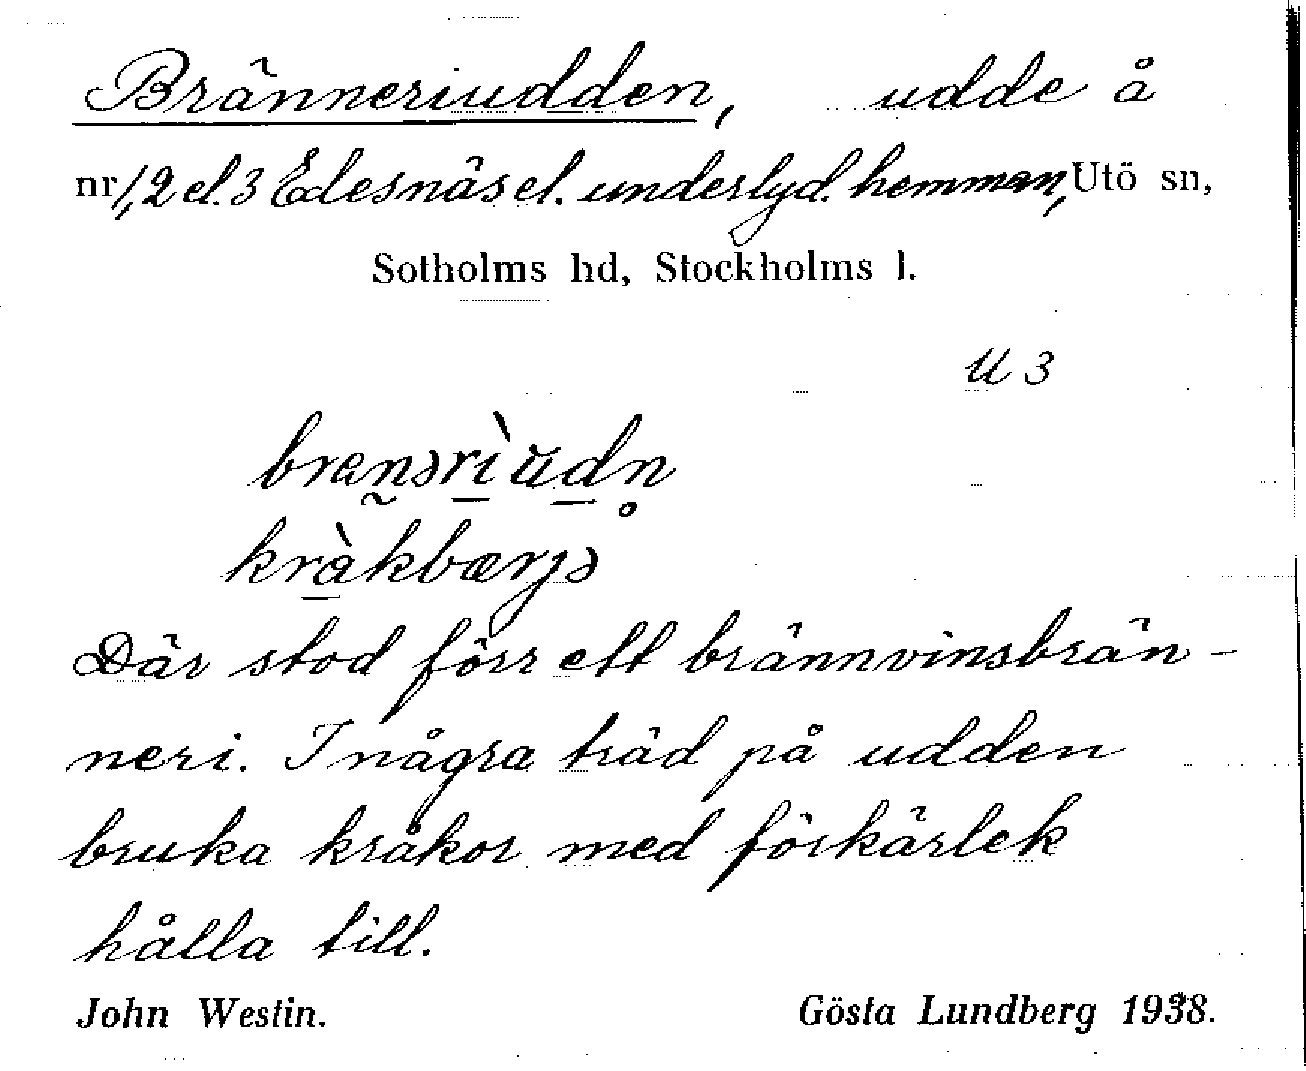 Bränneriudden, udde å
nr 1, 2 el. 3 Edesnäs el. underlyd. hemman, Utö sn,
Sotholms hd, Stockholms l.
U 3
branəriùdn
kràkbærjə
Där stod förr ett brännvinsbrän-
neri. I några träd på udden
bruka kråkor med förkärlek
hålla till.
John Westin. Gösta Lundberg 1938.